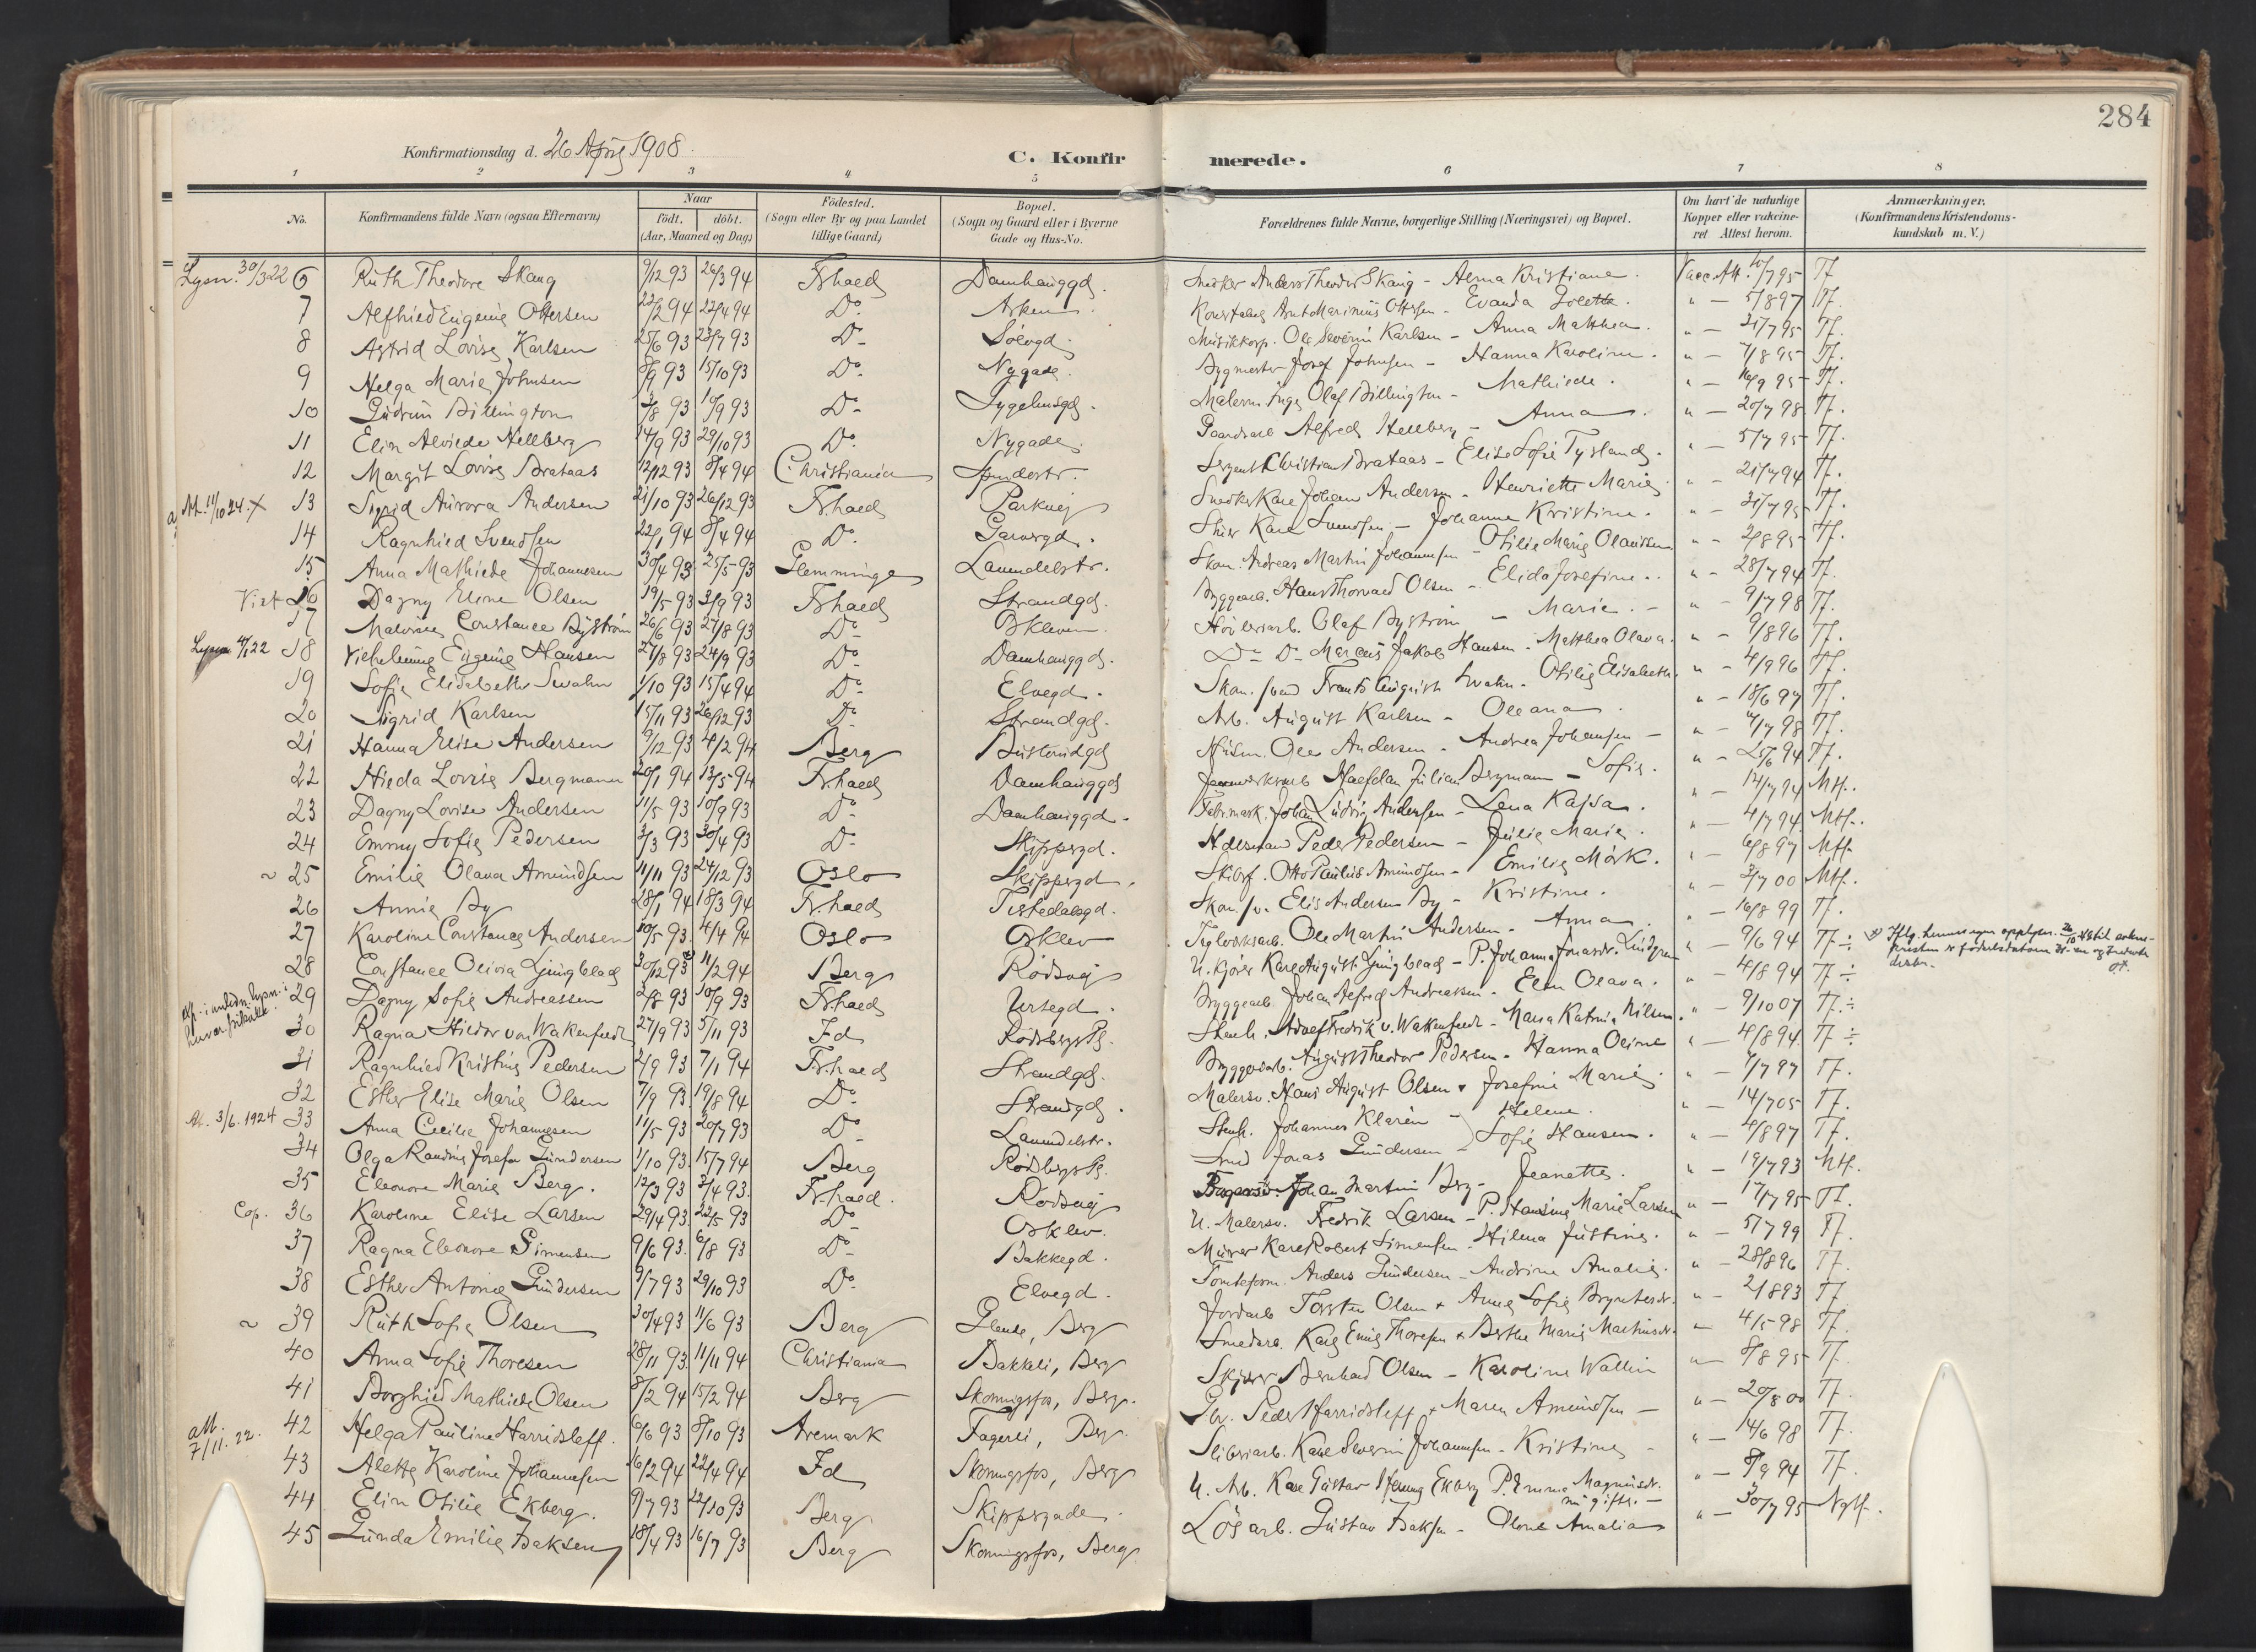 284
Konfirmationsdag d. 26 April 1908.
C. Konfirmerede.
1 2 3 4 5 6 7 8
No. Konfirmandens fulde Navn (ogsaa Efternavn) Naar født. døbt. (Aar, Maaned og Dag) Fødested. (Sogn eller By og paa Landet tillige Gaard) Bopæl. (Sogn og Gaard eller i Byerne Gade og Hus-No. Forældrenes fulde Navne, borgerlige Stilling (Næringsvei) og Bopæl. Om havt de naturlige Kopper eller vakcineret Attest herom. Anmærkninger. (Konfirmandens Kristendomskundskab m. V.)
Lysn. 30/3 22 6 Ruth Theodore Skaug 9/12 93 26/3 94 Frhald Damhauggd. Snedker Anders Theodor Skaug - Alma Kristiane. Vacc. Att. 10/7 95 Tf
7 Alfhild Eugenie Ottersen 23/2 94 22/4 94 Do. Asken. Konstabel Arnt Marinius Ottesen - Evanda Golette. " - 5/8 97 Tf.
8 Astrid Lovise Karlsen 25/6 93 23/7 93 Do Sølvgd. Musikkorp. Ole Severin Karlsen - Anna Matthea. " - 31/7 95 Tf.
9 Helga Marie Johnsen 8/9 93 15/10 93 Do. Nygade. Bygmester Josef Johnsen - Hanna Karoline. " - 7/8 95 Tf.
10 Gudrun Billington 3/8 93 10/9 93 Do. Malerm. Inge Olaf Billington - Mathilde. " - 16/9 95 Tf.
11 Elin Alvilde Hellberg 14/9 93 29/10 93 Do. Nygade. Gaardsarb Alfred Hellberg - Anna. " - 20/7 98 Tf.
12 Margit Lovise Brataas 12/12 93 8/4 94 Christiania Sergent Christian Brataas - Elise Sofie Tysland. " - 5/7 95 Tf.
Att. 11/10 24. x 13 Sigrid Aurora Andersen 21/10 93 26/12 93 Fr.hald Parkvej Snedker Karl Johan Andersen - Henriette Marie " - 21/7 94 Tf.
14 Ragnhild Svendsen 22/1 94 8/4 94 Do. Garvergd. Karl Svendsen - Johanne Kristine. " - 31/7 95 Tf.
15 Anna Mathilde Johannesen 30/4 93 25/5 93 Glemminge Laundelstr. Skom. Andreas Martin Johannesen - Otilie Marie Olaussen " - 2/8 95 Tf.
Viet 16 Dagny Eline Olsen 19/5 93 3/9 93 Frhald Strandgd. Byggearb. Hans Thorvald Olsen - Elida Josefine. " - 28/7 94 Tf.
17 Malvine Constance Byström 26/6 93 27/8 93 Do Oskleven. Høvleriarb. Olaf Byström - Marie. - " - 9/7 98 Tf.
Lysn 4/1 22 18 Vilhelmine Eugenie Hansen 27/8 93 24/9 93 Do Damhauggd. Do Do Marcus Jakob Hansen - Matthea Olava. " - 9/8 96 Tf.
19 Sofie Elisabeth Swahn 1/10 93 15/4 94 Do Elvegd. Skom. svend Frants August Swahn - Otilie Elisabeth. " - 4/9 96 Tf.
20 Sigrid Karlsen 15/11 93 26/12 93 Do Strandgd. Arb. August Karlsen - Oleana. " - 18/6 97 Tf.
21 Hanna Elise Andersen 9/12 93 4/2 94 Berg Husm. Ole Andersen - Andrea Johansen - " - 4/7 98 Tf.
22 Hilda Lovise Bergmann 20/1 94 13/5 94 Fr.hald Damhauggd Halfdan Julian Bergmann - Sofie. " - 25/6 94 Tf.
23 Dagny Lovise Andersen 11/5 93 10/9 93 Do Damhauggd. Johan Ludvig Andersen - Lena Kajsa. " - 14/7 94 Mtf.
24 Emmy Sofie Pedersen 3/3 93 30/4 93 Do Skippergd. Peder Pedersen - Julie Marie. " - 4/7 94 Mtf.
~ 25 Emilie Olava Amundsen 11/11 93 24/12 93 Oslo Skippergd. Skibsf. Otto Paulus Amundsen - Emilie Mörk. " - 6/8 97 Mtf.
26 Annie By 28/1 94 18/3 94 Fr.hald Tistedalsgd. Skom. sv. Elis Andersen By - Kristine. " - 3/7 00 Mtf.
27 Karoline Constance Andersen 10/5 93 4/4 94 Oslo Osklev Teglverksarb. Ole Martin Andersen - Anna. " - 16/8 99 Tf.
28 Constance Olivia Ljungblad 30/12 93 11/2 94 Berg Rödsvej U. kjører Karl August Ljungblad - P. Johanna Jonasdr. Lindgren " - 9/6 94 Tf ÷
29 Dagny Sofie Andreassen 2/8 93 10/9 93 Frhald Ursegd. Byggearb. Johan Alfred Andreassen - Elen Olava. " - 4/8 94 Tf ÷
30 Ragna Hildor von Wakenfeldt 27/9 93 5/11 93 Id Rödsbergs Pl. Stenh. Adolf Fredrik v. Wakenfeldt - Maria Katrine Nilsen. " - 9/10 07 Tf. ÷
31 Ragnhild Kristine Pedersen 2/9 93 7/1 94 Fr.hald Strandgd. Byggearb. August Theodor Pedersen - Hanna Oline " - 4/8 94 Tf ÷
32 Esther Elise Marie Olsen 7/9 93 19/8 94 Do Strandgd. Malersv. Hans August Olsen & Josefine Marie " - 7/7 97 Tf.
Att. 3/6. 1924 33 Anna Cecilie Johannesen 11/5 93 20/7 93 Do Laundelstr. Stenh. Johannes Klarén - Helene. " - 14/7 05 Tf.
34 Olga Randine Josefa Gundersen 1/10 93 15/7 94 Berg Rödsbergs Pl. Smed Jonas Gundersen - Sofie Hansen. " - 4/8 97 Tf.
35 Eleonore Marie Berg. 12/3 93 3/4 93. Fr.hald. Rödsvej Johan Martin Berg - Jeanette. " - 19/7 93 Mtf.
Cop. 36 Karoline Elise Larsen 29/4 93 22/5 93 Do Osklev. U. Malersv. Fredrik Larsen - P. Hansine Marie Larsen " - 17/7 95 Tf.
37 Ragna Eleonore Simensen 9/6 93. 6/8 93 Do Bakkegd. Murer Karl Robert Simensen - Hilma Justine. " - 5/7 99 Tf.
38 Esther Antonie Gundersen 9/7 93 29/10 93 Do. Elvegd. Tomteform. Anders Gundersen - Andrine Amalie. " - 28/8 96 Tf.
~ 39 Ruth Sofie Olsen 30/4 93 11/6 93 Berg Berg Jordarb Torsten Olsen & Anna Sofie Bryntesdr. " - 2/8 93 Tf
40 Anna Sofie Thoresen 28/11 93. 11/11 94 Christiania Bakkeli, Berg Smedarb. Karl Emil Thoresen & Berthe Marie Martinsdr. " - 4/5 98 Tf.
41 Borghild Mathilde Olsen 8/2 94 15/2 94 Berg Skonningsfos, Berg. Skjærer Bernhard Olsen - Karoline Wallin " - 8/8 95 Tf.
att. 7/11. 22. 42 Helga Pauline Harridsleff. 6/6 93 8/10 93 Aremark Fagerli, Berg. Peder Harridsleff & Maren Amundsen - " - 20/8 00 Tf.
43 Alette Karoline Johannesen 16/2 94 22/4 94 Id Skonningsfos, Berg Sliberiarb. Karl Severin Johannesen - Kristine - " - 14/6 98 Tf.
44 Elin Otilie Ekberg. 9/7 93 22/10 93 Berg Skippergade. U. Arb. Karl Gustav Ekberg P. Emma Magnusdr. nu gifte. - " - 8/9 94 Tf.
45 Gunda Emilie Isaksen 18/4 93 16/7 93 Berg Skonningsfos, Berg Løsarb. Gustav Isaksen - Olone Amalia " - 30/7 95 Ngtf.